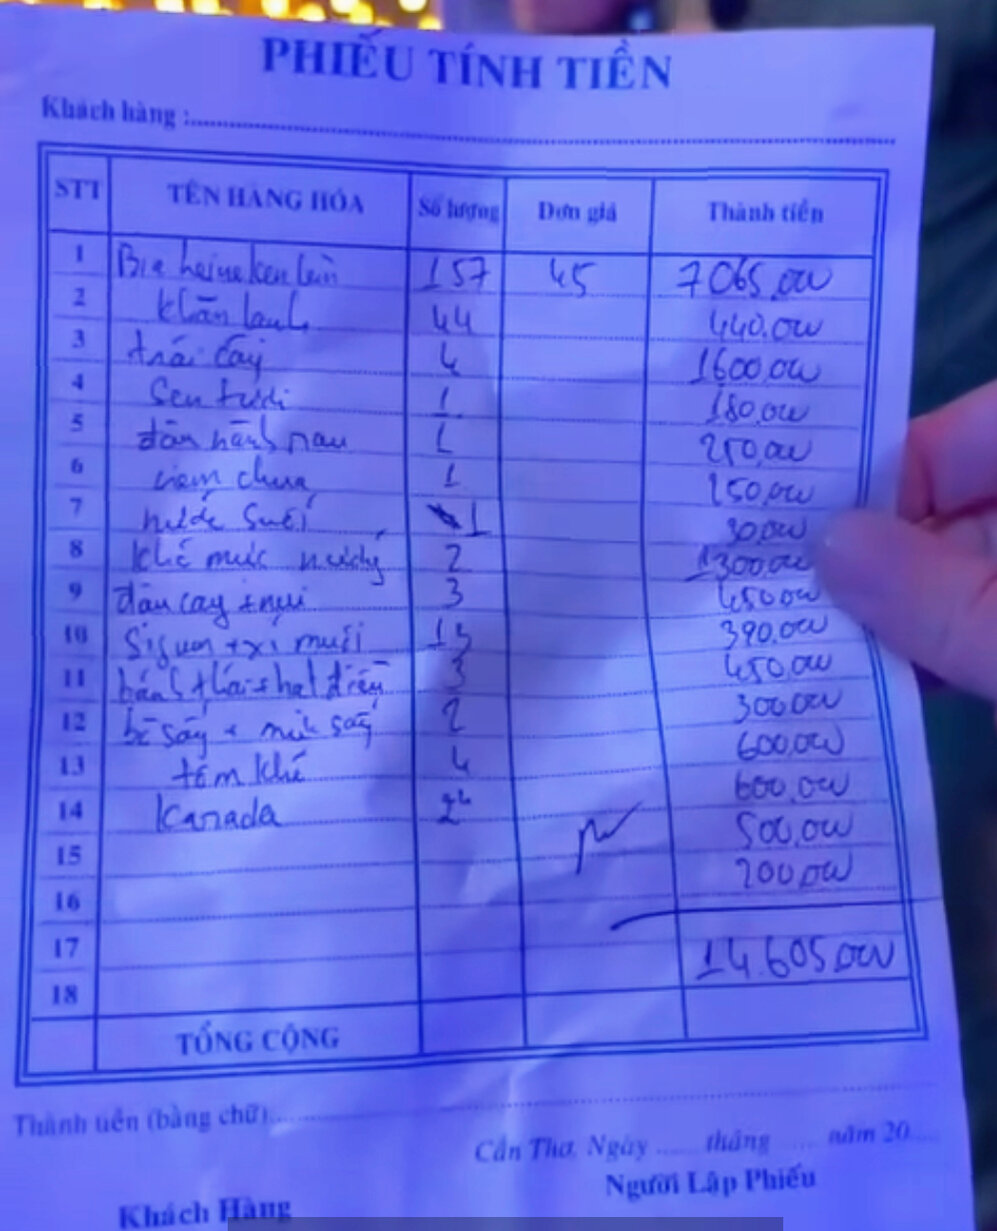 PHIẾU TÍNH TIỀN
Khách hàng :
STT TÊN HÀNG HÓA Số lượng Đơn giá Thành tiền
1 Bia heineken lùn 157 45 7065.000
2 khăn lạnh 44 440.000
3 trái cây 4 1600.000
4 Sen tươi 1 180.000
5 đậu hành nau 1 250.000
6 nem chua 1 150.000
7 nước suối 1 30.000
8 khô mực nướng 2 1300.000
9 đậu cay + nui 3 450.000
10 + xí muội 13 390.000
11 bánh thái + hạt điều 3 450.000
12 bò sấy + mực sấy 2 300.000
13 tôm khô 4 600.000
14 Kanada 24 600.000
15 500.000
16 200.000
17 14.605.000
18
TỔNG CỘNG
Thành tiền (bằng chữ)
Cần Thơ, Ngày ..... tháng ..... năm 20....
Khách Hàng Người Lập Phiếu